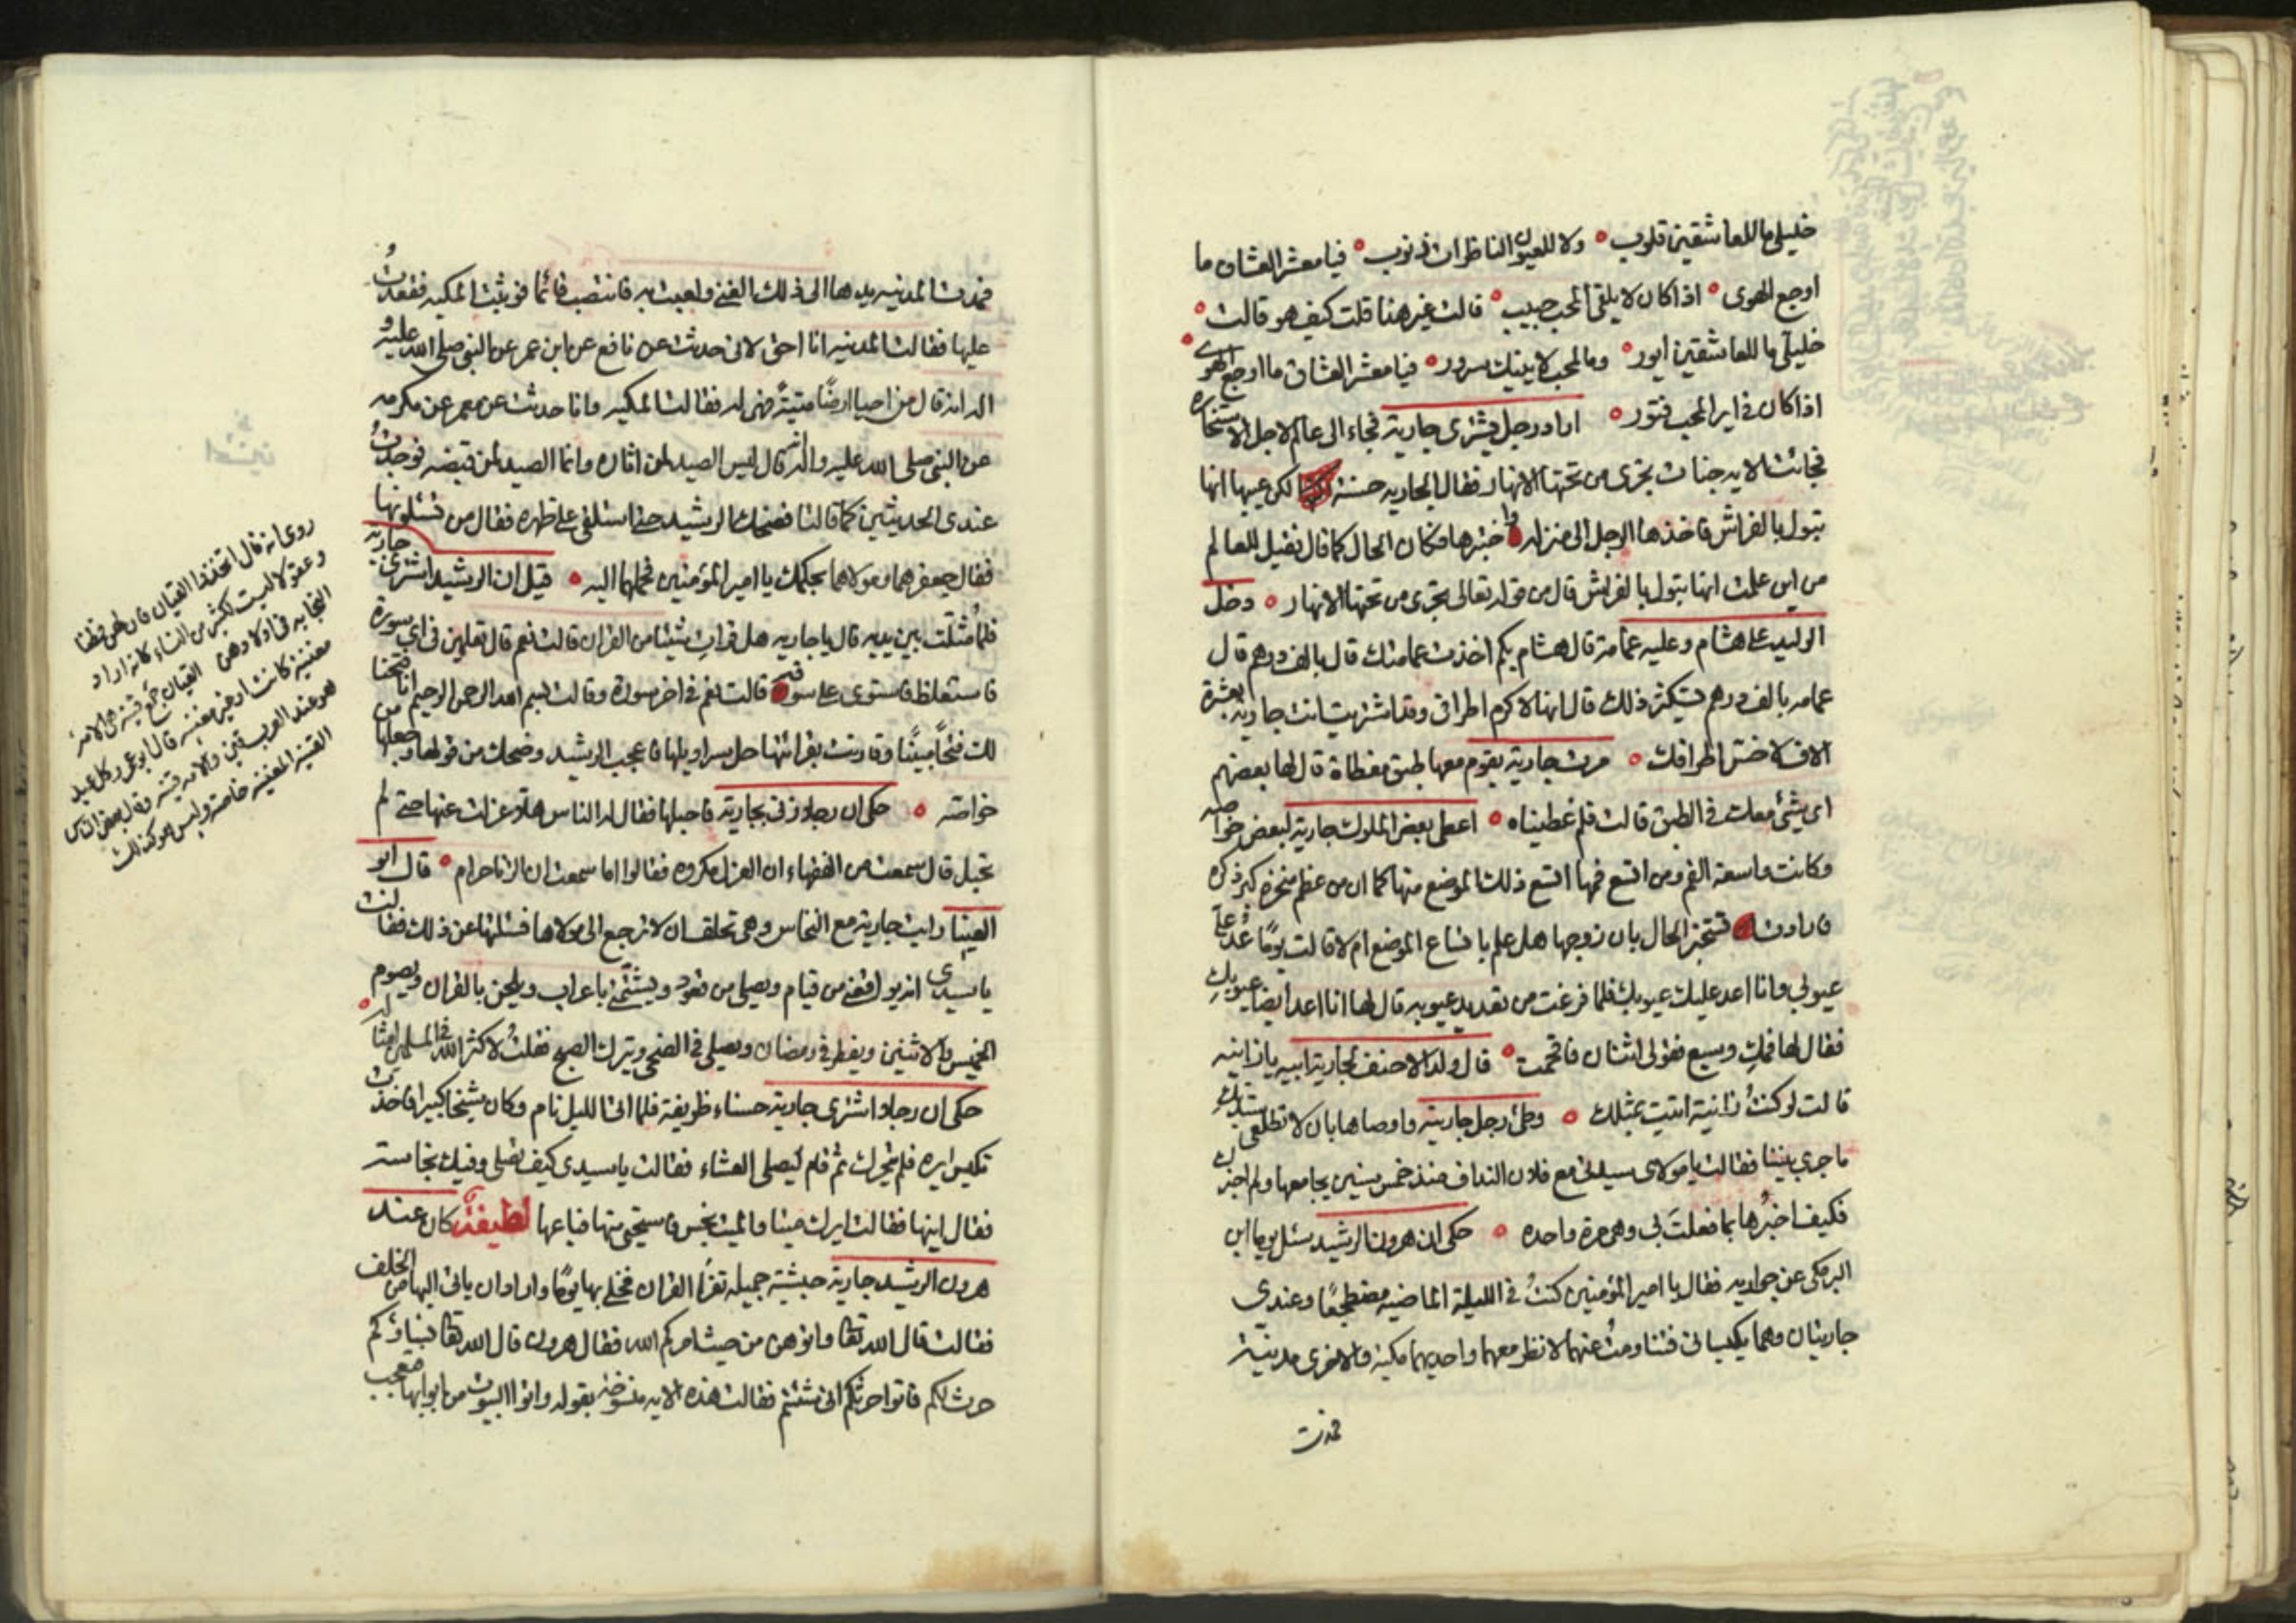 خليلي ما للعاشقين قلوب ولا للعيون الناظرات ذنوب فيا معشر العشاق ما
اوجع الهوى اذا كان لا يلقى المحب حبيب قالت غير هذا قلت كيف هو قالت
خليلي ما للعاشقين ايور وما لمحب لا ينيك سرور فيا معشر العشاق ما اوجع الهوى
اذا كان في اير المحب فتور اراد رجل يشترى جارية فجاء الى عالم لاجل الاستخاره
فجائت الايه جنات تجرى من تحتها الانهار فقال الجاريه حسنة لكن عيبها انها
تبول بالفراش فاخذها الرجل الى منزله واختبرها فكان الحال كما قال فقيل للعالم
من اين علمت انها تبول بالفراش قال من قوله تعالى تجرى من تحتها الانهار دخل
الوليد على هشام وعليه عمامة قال هشام بكم اخذت عمامتك قال بالف درهم قال
عمامه بالف درهم يستكثر ذلك قال انها لاكرم اطرافى وقد اشتريت انت جارية بعشرة
الاف لاخس اطرافك مرت جارية بقوم معها طبق مغطاة قال لها بعضهم
اى شئ معك في الطبق قالت فلم غطيناه اعطى بعض الملوك جارية لبعض خواصه
وكانت واسعة الفم ومن اتسع فمها اتسع ذلك الموضع منها كما ان من عظم منخره كبر ذكره
فارادت تستخبر الحال بان زوجها هل علم باتساع الموضع ام لا قالت يوما عد على
عيوبي وانا اعد عليك عيوبك فلما فرغت من تعديد عيوبه قال لها انا اعد ايضا عيوبك
فقال لها فمك وسيع فقولى اثنان فافحمت قال ولد الاحنف لجارية ابيه يا زانيه
قالت لو كنت زانية اتيت بمثلك وطئ رجل جارية واوصاها بان لا تطلعى ستيك
ما جرى بيننا فقالت يا مولاى سيدتى مع فلان النداف منذ خمس سنين يجامعها ولم اخبرك
فكيف اخبرها بما فعلت بى وهى مرة واحده حكى ان هرون الرشيد سئل يوما ابن
البرمكى عن جواريه فقال يا امير المؤمنين كنت في الليلة الماضيه مضطجعا وعندي
جاريتان وهما يكبسانى فتناومت عنهما لانظر معهما واحديهما مكية والاخرى مدينية
فمدت
فمدت المدنيه يدها الى ذلك الشئ ولعبت به فانتصب قائما فوثبت المكيه فقعدت
عليها فقالت المدنيه انا احق لانى حدثت عن نافع عن ابن عمر عن النبى صلى الله عليه و
اله انه قال من احيا ارضا ميتة فهى له فقالت المكيه وانا حدثت عن معمر عن عكرمه
عن النبى صلى الله عليه واله انه قال ليس الصيد لمن اثاره وانما الصيد لمن قبضه فوجدت
عندى الحديثين كما قالتا فضحك الرشيد حتى استلقى على ظهره فقال من تسلونها
فقال جعفر هما ومولاهما بحكمك يا امير المؤمنين فحملهما اليه قيل ان الرشيد اشترى جارية
فلما مثلت بين يديه قال يا جاريه هل قرات شيئا من القران قالت نعم قال تعلمين في اى سورة
فاستغلظ فاستوى على سوقه قالت نعم في اخر سورة وقالت بسم الله الرحمن الرحيم انا فتحنا
لك فتحا مبينا وقارنت بقرائتها حل سراويلها فاعجب الرشيد وضحك من قولها وجعلها من
خواصه حكى ان رجلا زنى بجارية فاحبلها فقال له الناس هلا عزلت عنها حتى لم
تحبل قال سمعت من الفقهاء ان العزل مكروه فقالوا اما سمعت ان الزنا حرام قال ابو
العينا رايت جارية مع النخاس وهى تحلف ان لا ترجع الى مولاها فسئلتها عن ذلك فقالت
يا سيدى انه يواقعنى من قيام ويصلى من قعود ويشتمنى باعراب ويلحن بالقران ويصوم
الخميس والاثنين ويفطر في رمضان ويصلى في الضحى ويترك الصبح فقلت لا كثر الله في المسلمين امثاله
حكى ان رجلا اشترى جارية حسناء ظريفة فلما اتى الليل نام وكان شيخا كبيرا فاخذت
تكبس ايره فلم يتحرك ثم قام ليصلى العشاء فقالت يا سيدى كيف تصلى وفيك نجاسة
فقال اينها فقالت ايرك ميتا والميت نجس فاستحيى منها فباعها لطيفة كان عند
هرون الرشيد جارية حبشية جميله تقرأ القران فخلى بها يوما واراد ان ياتى اليها من الخلف
فقالت قال الله تعالى واتوهن من حيث امركم الله فقال هرون قال الله تعالى نساؤكم
حرث لكم فاتوا حرثكم انى شئتم فقالت هذه الايه منسوخة بقوله واتوا البيوت من ابوابها فعجب
روى انه قال اتخذوا القيان فان لهن فطنا
وعقولا ليست لكثير من النساء كانه اراد
النجابه في اولادهن القيان جمع قينه هى الامة
مغنية كانت او غير مغنية قال ابو عمرو كل عبد
هو عند العرب قين والامه قينه وقال بعض الناس
القينه المغنيه خاصة وليس هو كذلك